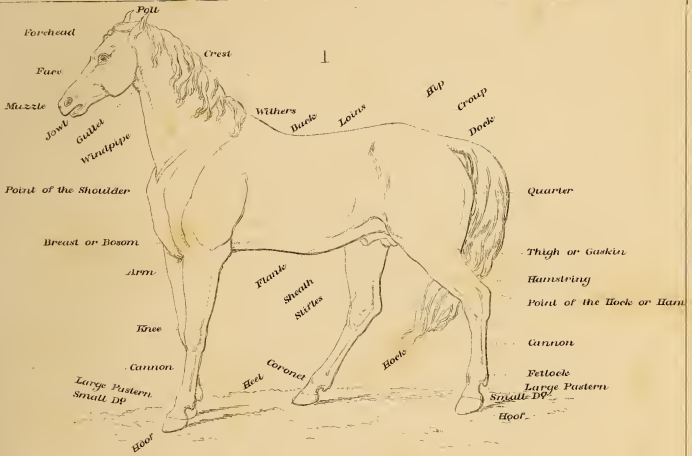 Poll
Forehead
Crest
1
Face
Muzzle
Jowl
Gullet
Windpipe
Withers
Back
Loins
Hip
Croup
Dock
Point of the Shoulder
Quarter
Breast or Bosom
Thigh or Gaskin
Arm
Flank
Sheath
Stifles
Hamstring
Point of the Hock or Ham
Knee
Cannon
Hock
Cannon
Heel
Coronet
Fetlock
Large Pastern
Small Do
Large Pastern
Small Do
Hoof
Hoof